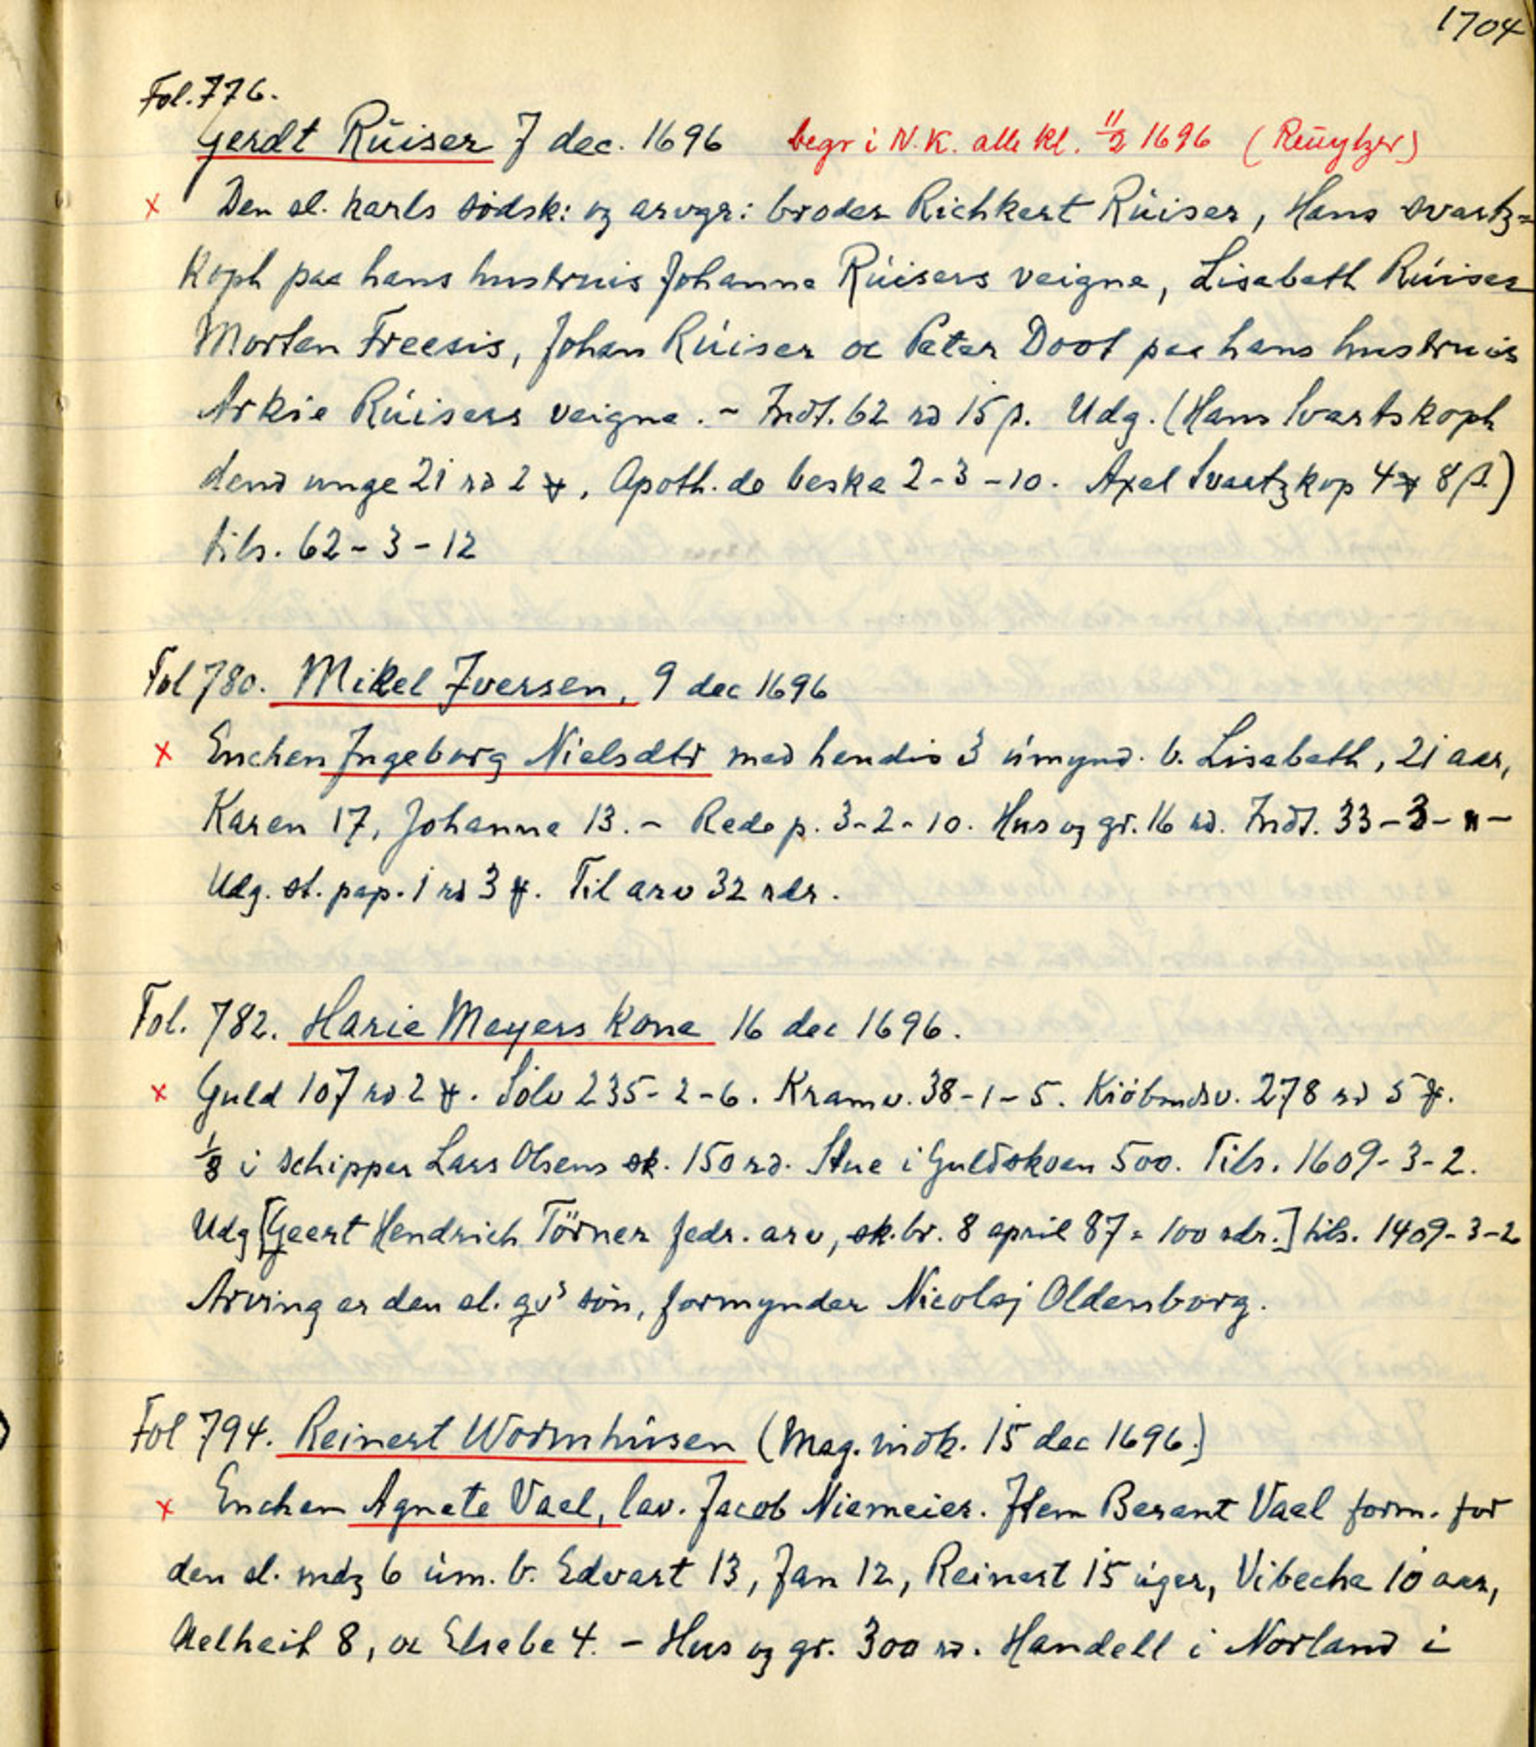 1704
Fol. 776.
Gerdt Rüiser 7 dec. 1696 begr i N.K. alle kl. 11/2 1696 (Reuytzer)
x Den sl. karls södsk: og arvgr: broder Richkert Rúiser, Hans Svartz=
koph paa hans hustruis Johanne Rúisers veigne, Lisabeth Rúiser
Morten Freesis, Johan Rúiser oc Peter Doot paa hans hustruis
Arkie Rúisers veigne. - Indt. 62 rd 15 β. Udg. (Hans Svartskoph
dend unge 21 rd 2 , Apoth. do beske 2-3-10. Axel Svartzkop 4 8 β.)
tils. 62-3-12
Fol 780. Mikel Iversen, 9 dec 1696
x Enchen Ingeborg Nielsdtr med hendis 3 úmynd. b. Lisabeth, 21 aar,
Karen 17, Johanne 13. - Rede p. 3-2-10. Hus og gr. 16 rd. Indt. 33-3-"-
Udg. st. pap. 1 rd 3 . Til arv 32 rdr.
Fol. 782. Harie Meyers Kone 16 dec 1696.
x Guld 107 rd 2 . Sölv 235-2-6. Kramv. 38-1-5. Kiöbmdsv. 278 rd 5 .
1/8 i schipper Lars Olsens sk. 150 rd. Stue i Guldskoen 500. Tils. 1609-3-2.
Udg [Geert Hendrich Törner fedr. arv, sk. br. 8 april 87 = 100 rdr.] tils. 1409-3-2
Arving er den sl. qvˢ sön, formynder Nicolaj Oldenborg.
Fol 794. Reinert Wormhúsen (Mag. indk. 15 dec 1696.)
x Enchen Agnete Vael, lav. Jacob Niemeier. Item Berent Vael form. for
den sl. mdz 6 úm. b. Edvart 13, Jan 12, Reinert 15 úger, Vibeche 10 aar,
Aelheit 8, oc Elsebe 4. - Hus og gr. 300 rd. Handell i Norland i